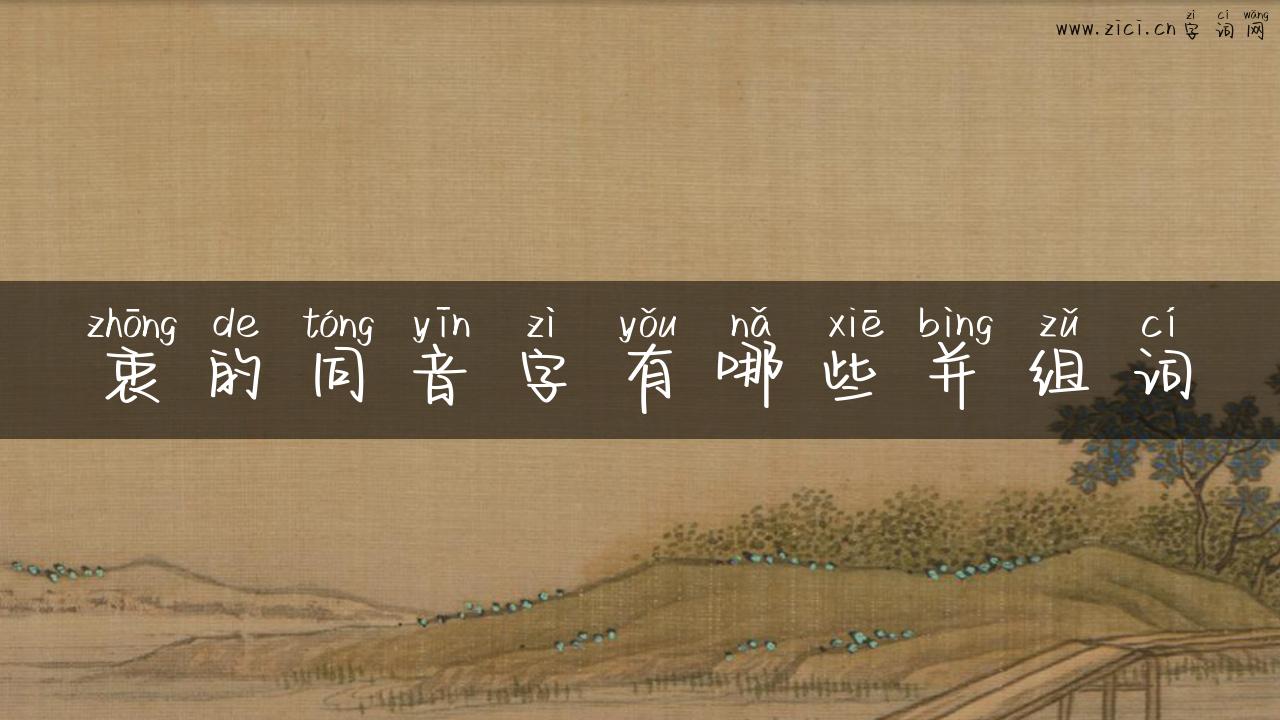 zì cí wǎng
www.zici.cn字词网
zhōng de tóng yīn zì yǒu nǎ xiē bìng zǔ cí
衷的同音字有哪些并组词